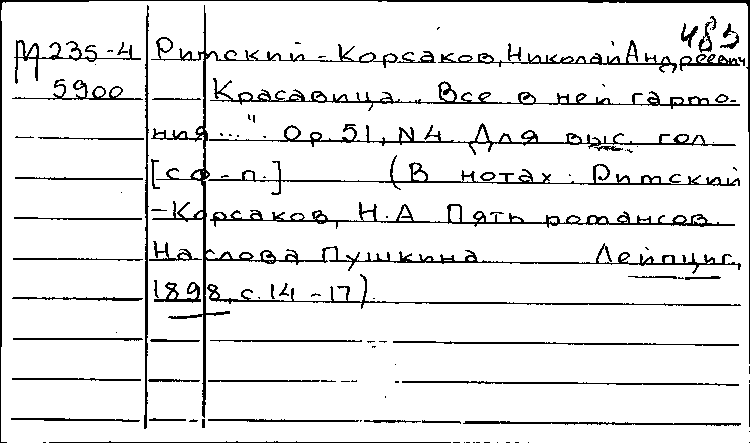 483
М 235-4 Римский-Корсаков, Николай Андреевич
5900 Красавица „Все в ней гармо-
ния...". Op. 51, N4. Для выс. гол.
[с ф-п.] (В нотах: Римский
-Корсаков, Н.А Пять романсов.
На слова Пушкина Лейпциг,
1898, с. 14-17)